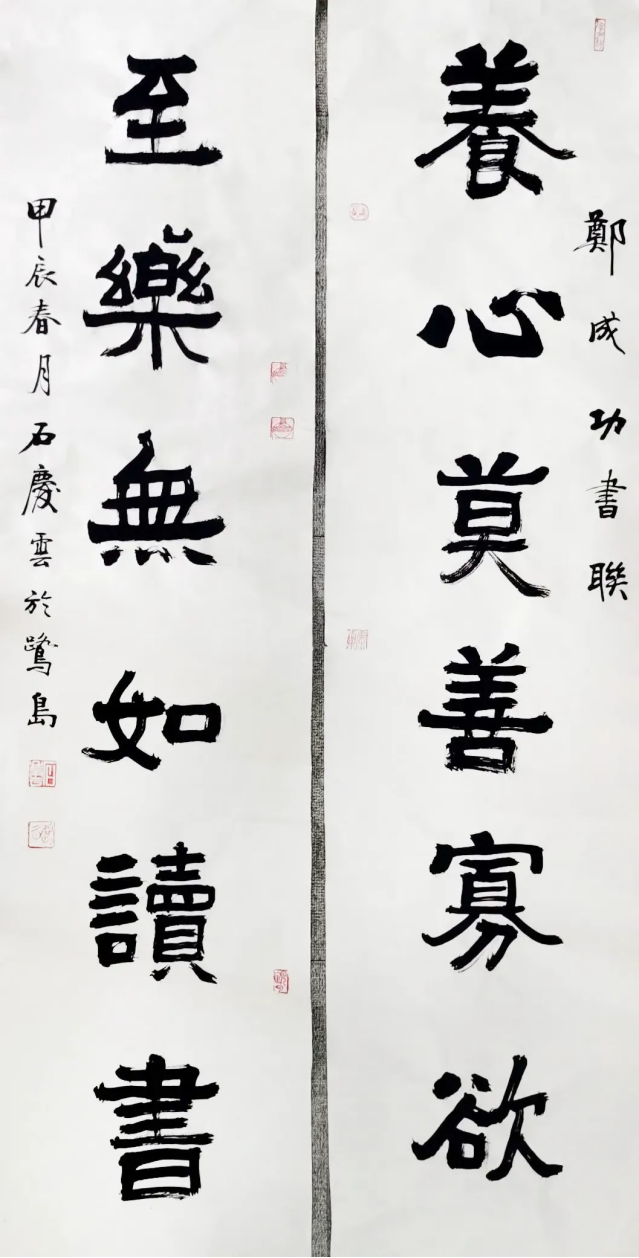 鄭成功書聯
養心莫善寡欲
至樂無如讀書
甲辰春月石慶雲於鷺島